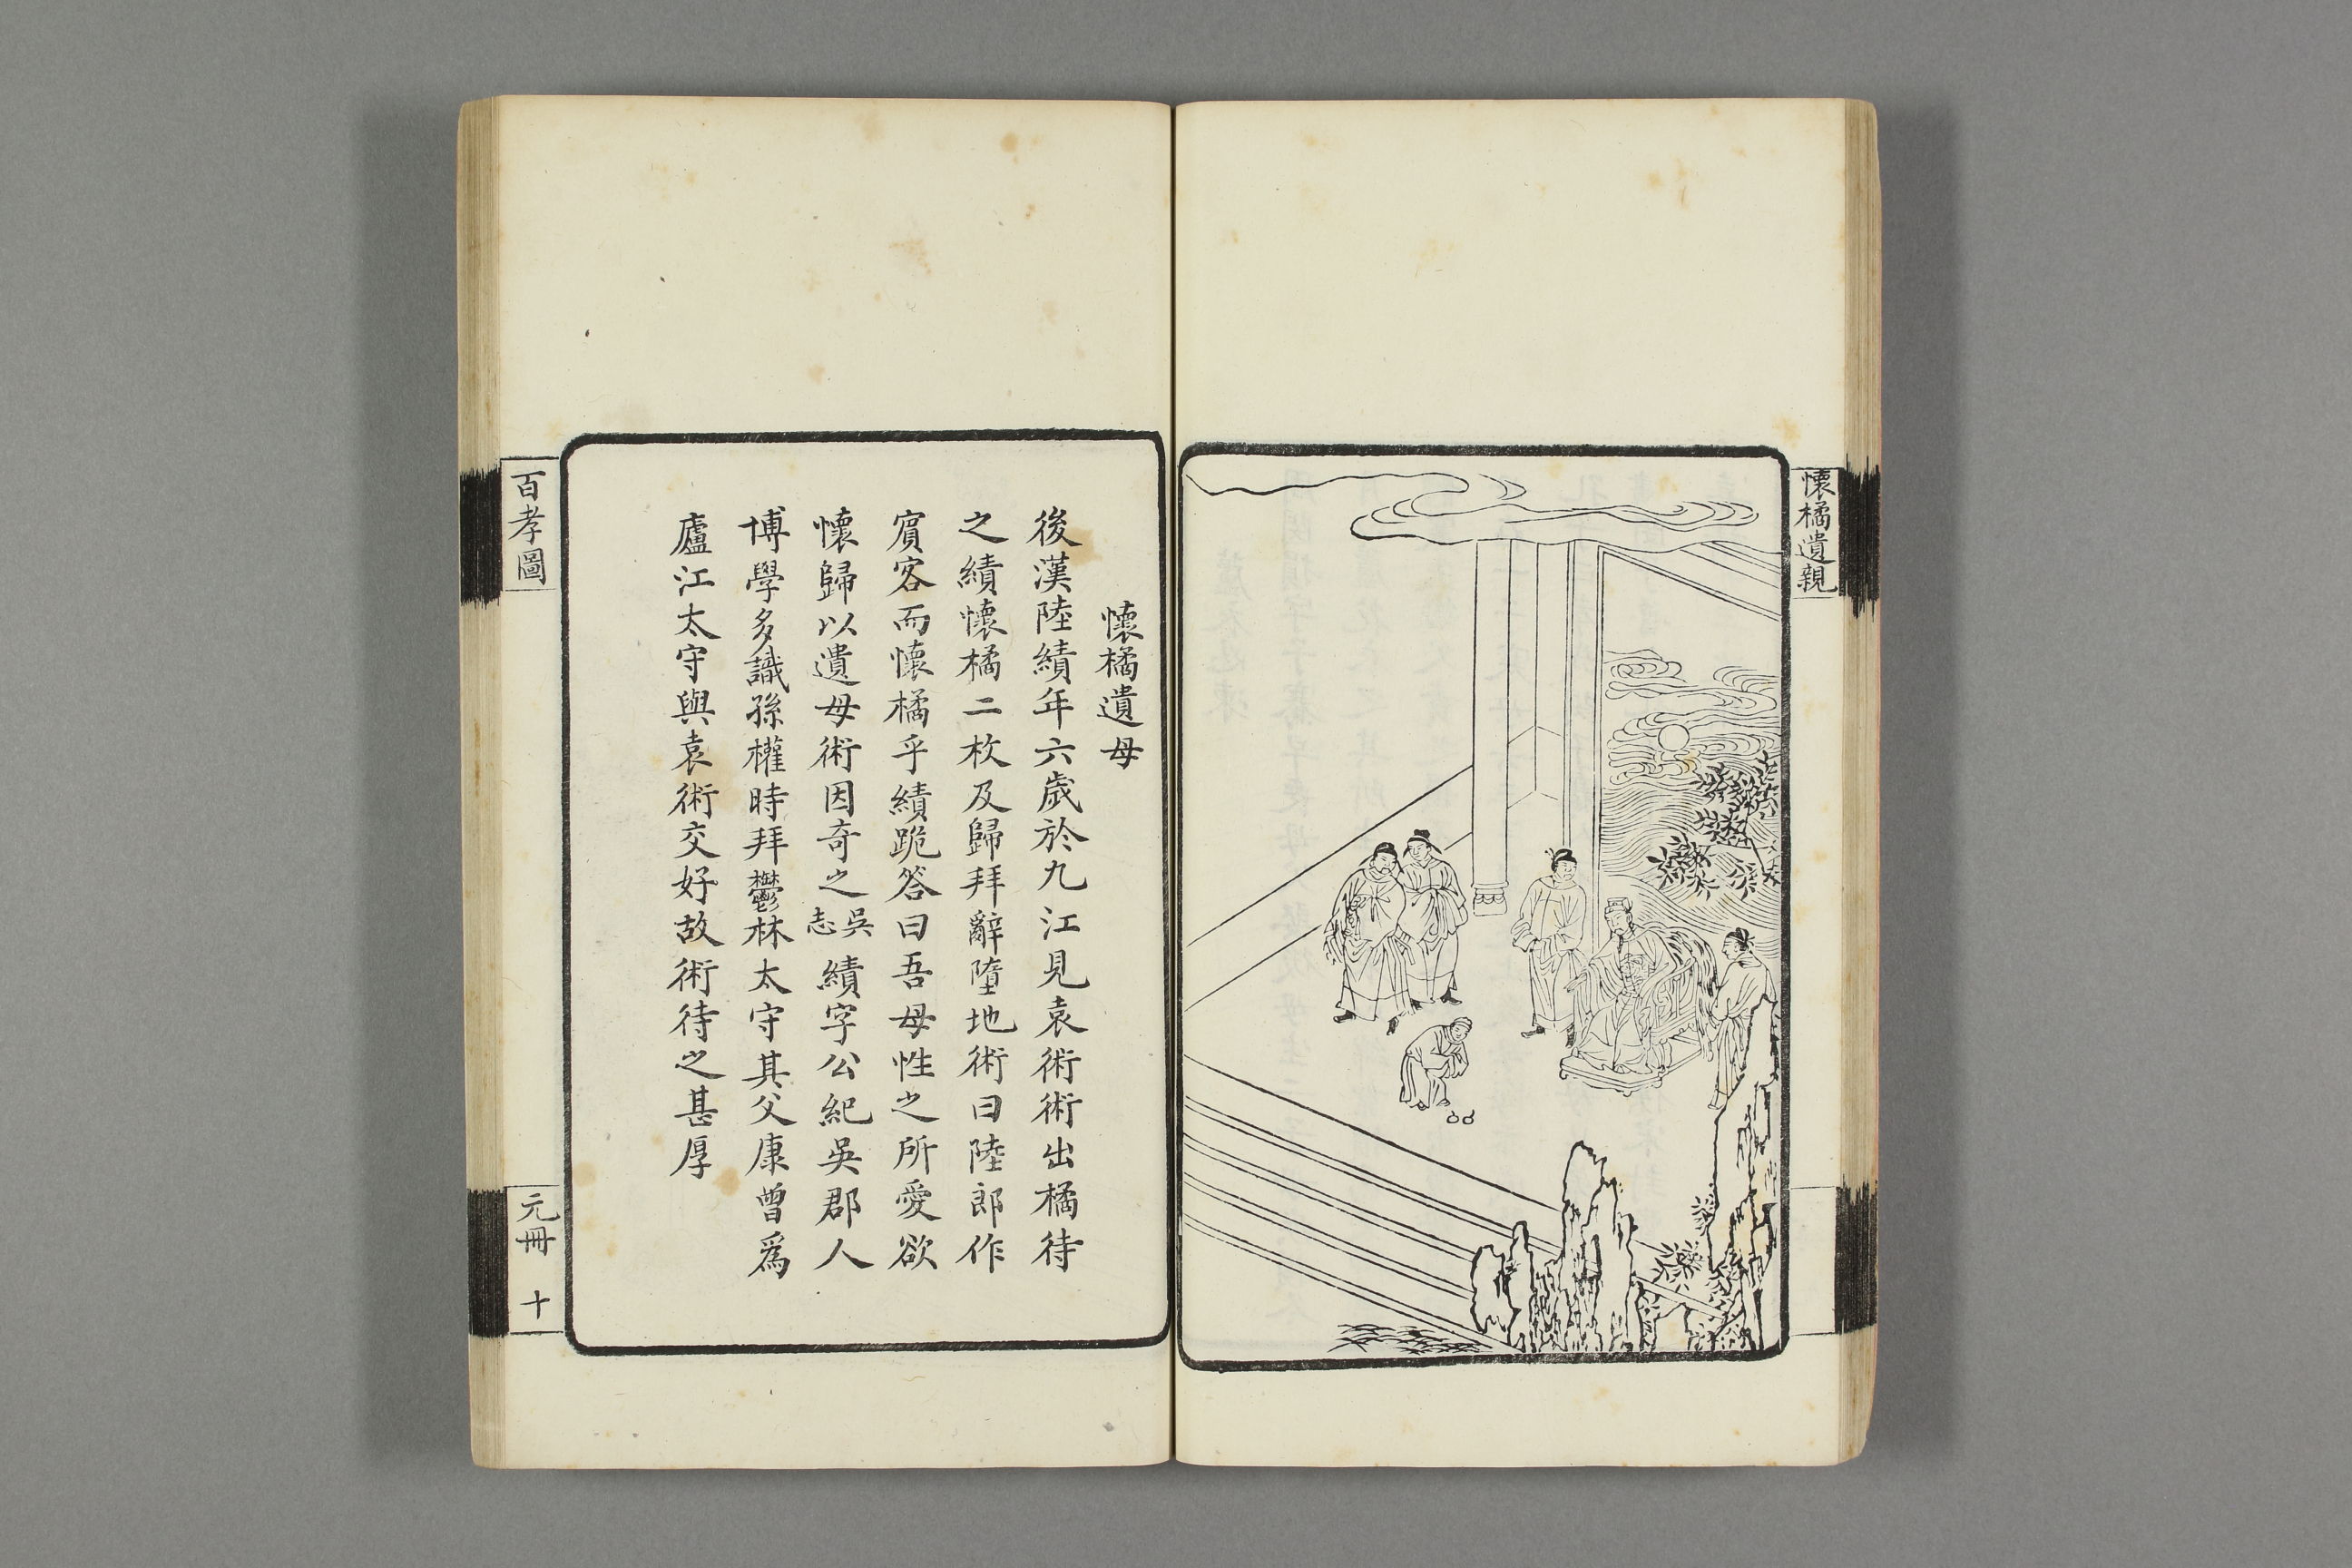 懷橘遺親
懷橘遺母
後漢陸績年六歲於九江見袁術術出橘待
之績懷橘二枚及歸拜辭墮地術曰陸郎作
賓客而懷橘乎績跪答曰吾母性之所愛欲
懷歸以遺母術因奇之吳志績字公紀吳郡人
博學多識孫權時拜鬱林太守其父康曾爲
廬江太守與袁術交好故術待之甚厚
百孝圖
元冊 十